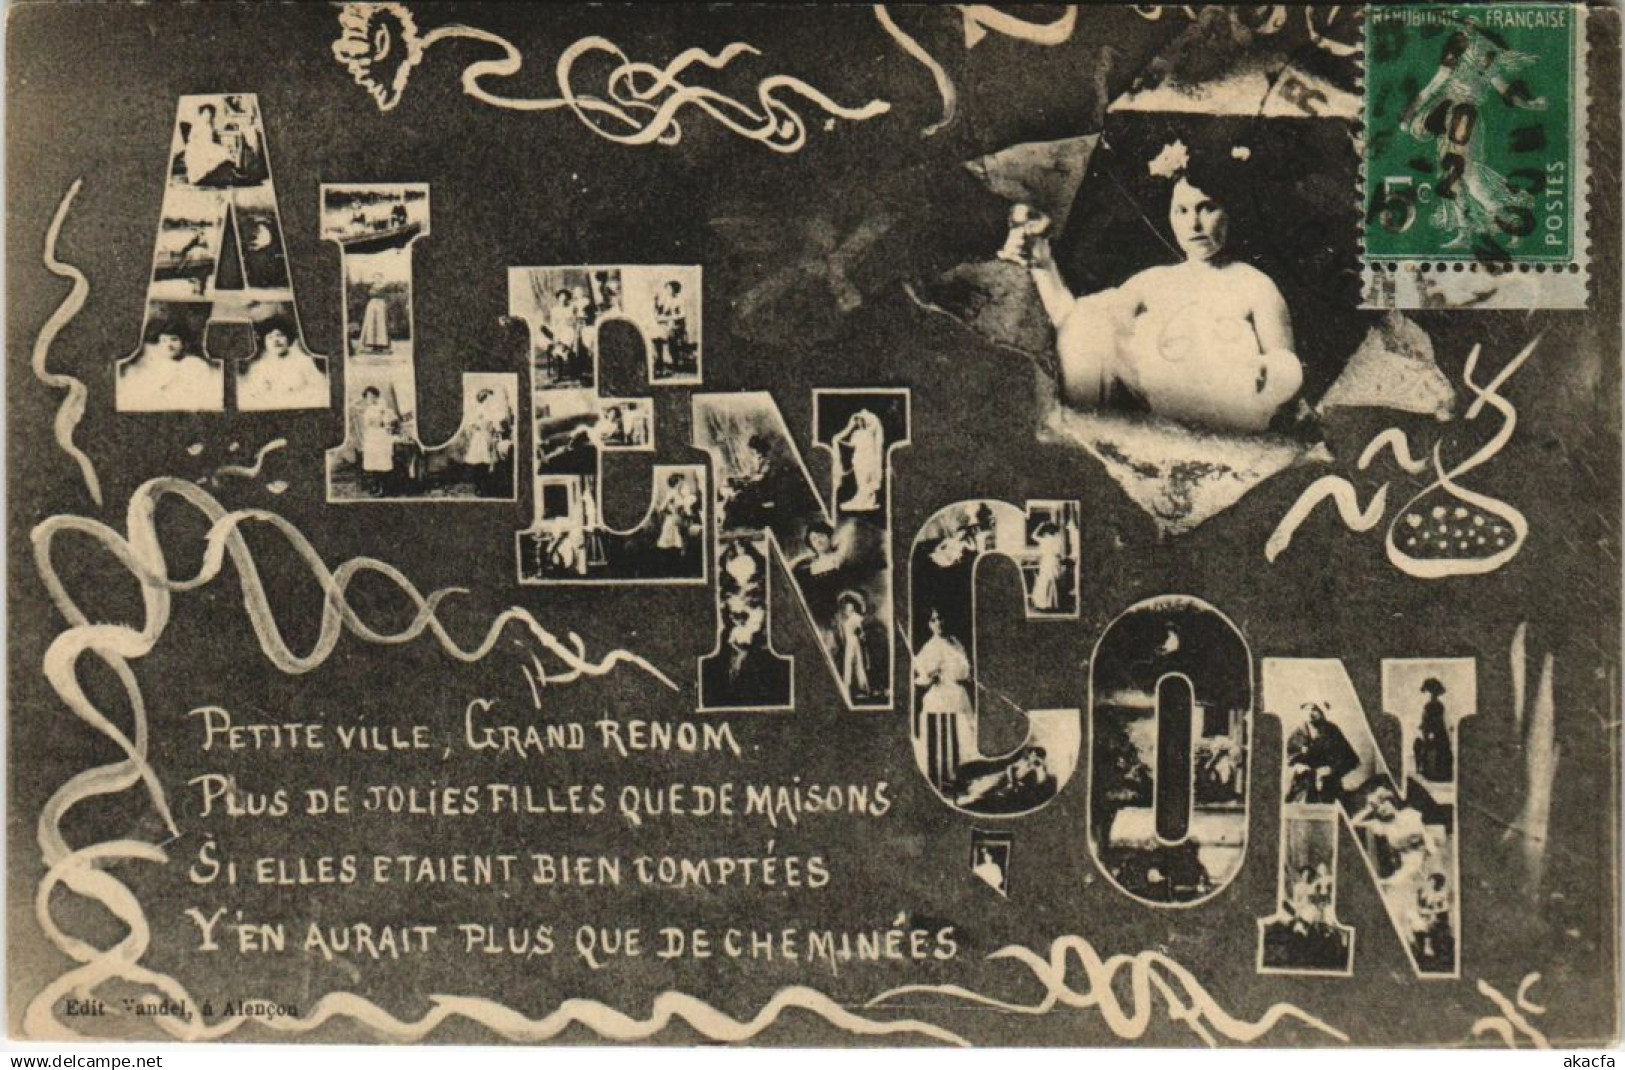 RÉPUBLIQUE FRANÇAISE
5c
POSTES
ALENÇON
PETITE VILLE, GRAND RENOM.
PLUS DE JOLIES FILLES QUE DE MAISONS
SI ELLES ETAIENT BIEN COMPTÉES
Y'EN AURAIT PLUS QUE DE CHEMINÉES
Edit Vandel, á Alençon
https://www.delcampe.net
akacfa